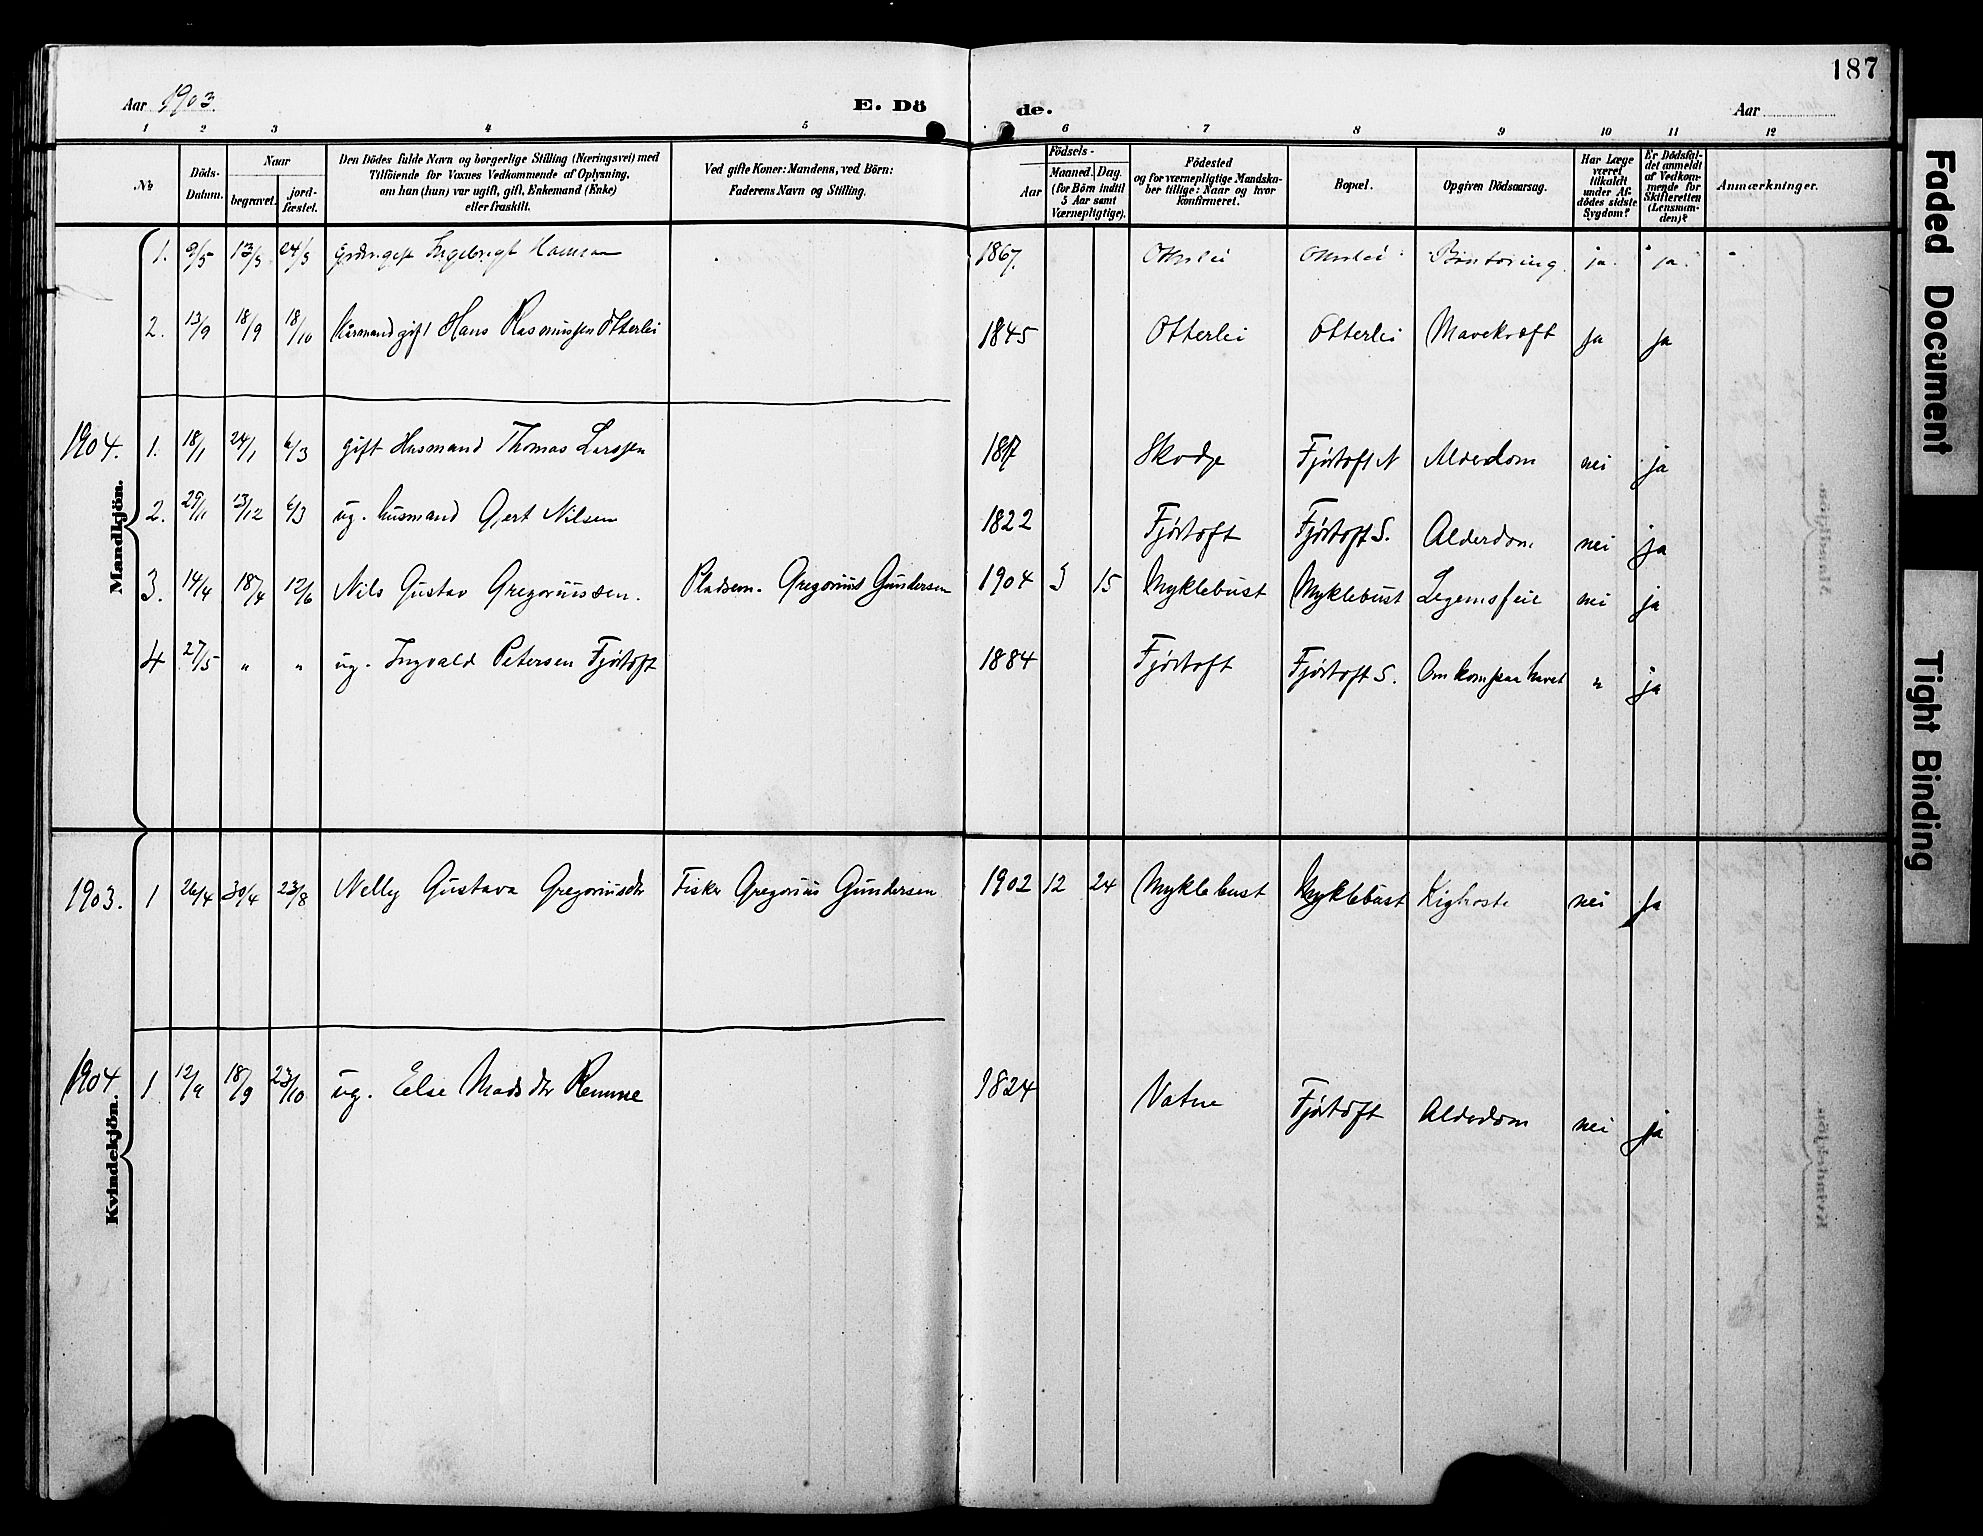 187
Aar 1903.
E. Döde.
Aar
1 2 3 4 5 6 7 8 9 10 11 12
No
Döds-Datum.
Naar
begravet.
jord-fæstet.
Den Dödes fulde Navn og borgerlige Stilling (Næringsvei) med
Tilföiende for Voxnes Vedkommende af Oplysning,
om han (hun) var ugift, gift, Enkemand (Enke)
eller fraskilt.
Ved gifte Koner: Mandens, ved Börn:
Faderens Navn og Stilling.
Födsels-
Aar
Maaned. Dag.
(for Börn indtil
5 Aar samt
Værnepligtige).
Födested
og for værnepligtige Mandska-
ber tillige: Naar og hvor
konfirmeret.
Bopæl.
Opgiven Dödsaarsag.
Har Læge
været
tilkaldt
under Af-
dödes sidste
Sygdom?
Er Dödsfal-
det anmeldt
af Vedkom-
mende for
Skifteretten
(Lensman-
den)?
Anmærkninger.
Mandkjön.
1. 9/5 13/5 24/5 Ingebrigt 1867. ja. ja.
2. 13/9 18/9 18/10 Kårmand gift Hans Rasmussen Otterlei 1845 Otterlei Otterlei Mavekræft ja ja
1904. 1. 18/1 24/1 6/3 gift Husmand Thomas Larssen Skodje Fjørtoft N Alderdom nei ja
2. 29/11 13/12 6/3 ug. husmand Gjert Nilsen 1822 Fjørtoft Fjørtoft S. Alderdom nei ja
3. 14/4 18/4 12/6 Nils Gustav Gregoriussen. Pladsem. Gregorius Gundersen 1904 3 15 Myklebust Myklebust Legemsfeil nei ja
4 27/5 " " ug. Ingvald Petersen Fjørtoft 1884 Fjørtoft Fjørtoft S. Omkom paa havet " ja
Kvindekjön.
1903. 1 26/4 30/4 23/8 Nelly Gustava Gregoriusdtr Fisker Gregorius Gundersen 1902 12 24 Myklebust Myklebust Kighoste nei ja
1904. 1 12/9 18/9 23/10 ug. Else Madsdtr Remme 1824 Vatne Fjørtoft Alderdom nei ja
Faded Document
Tight Binding